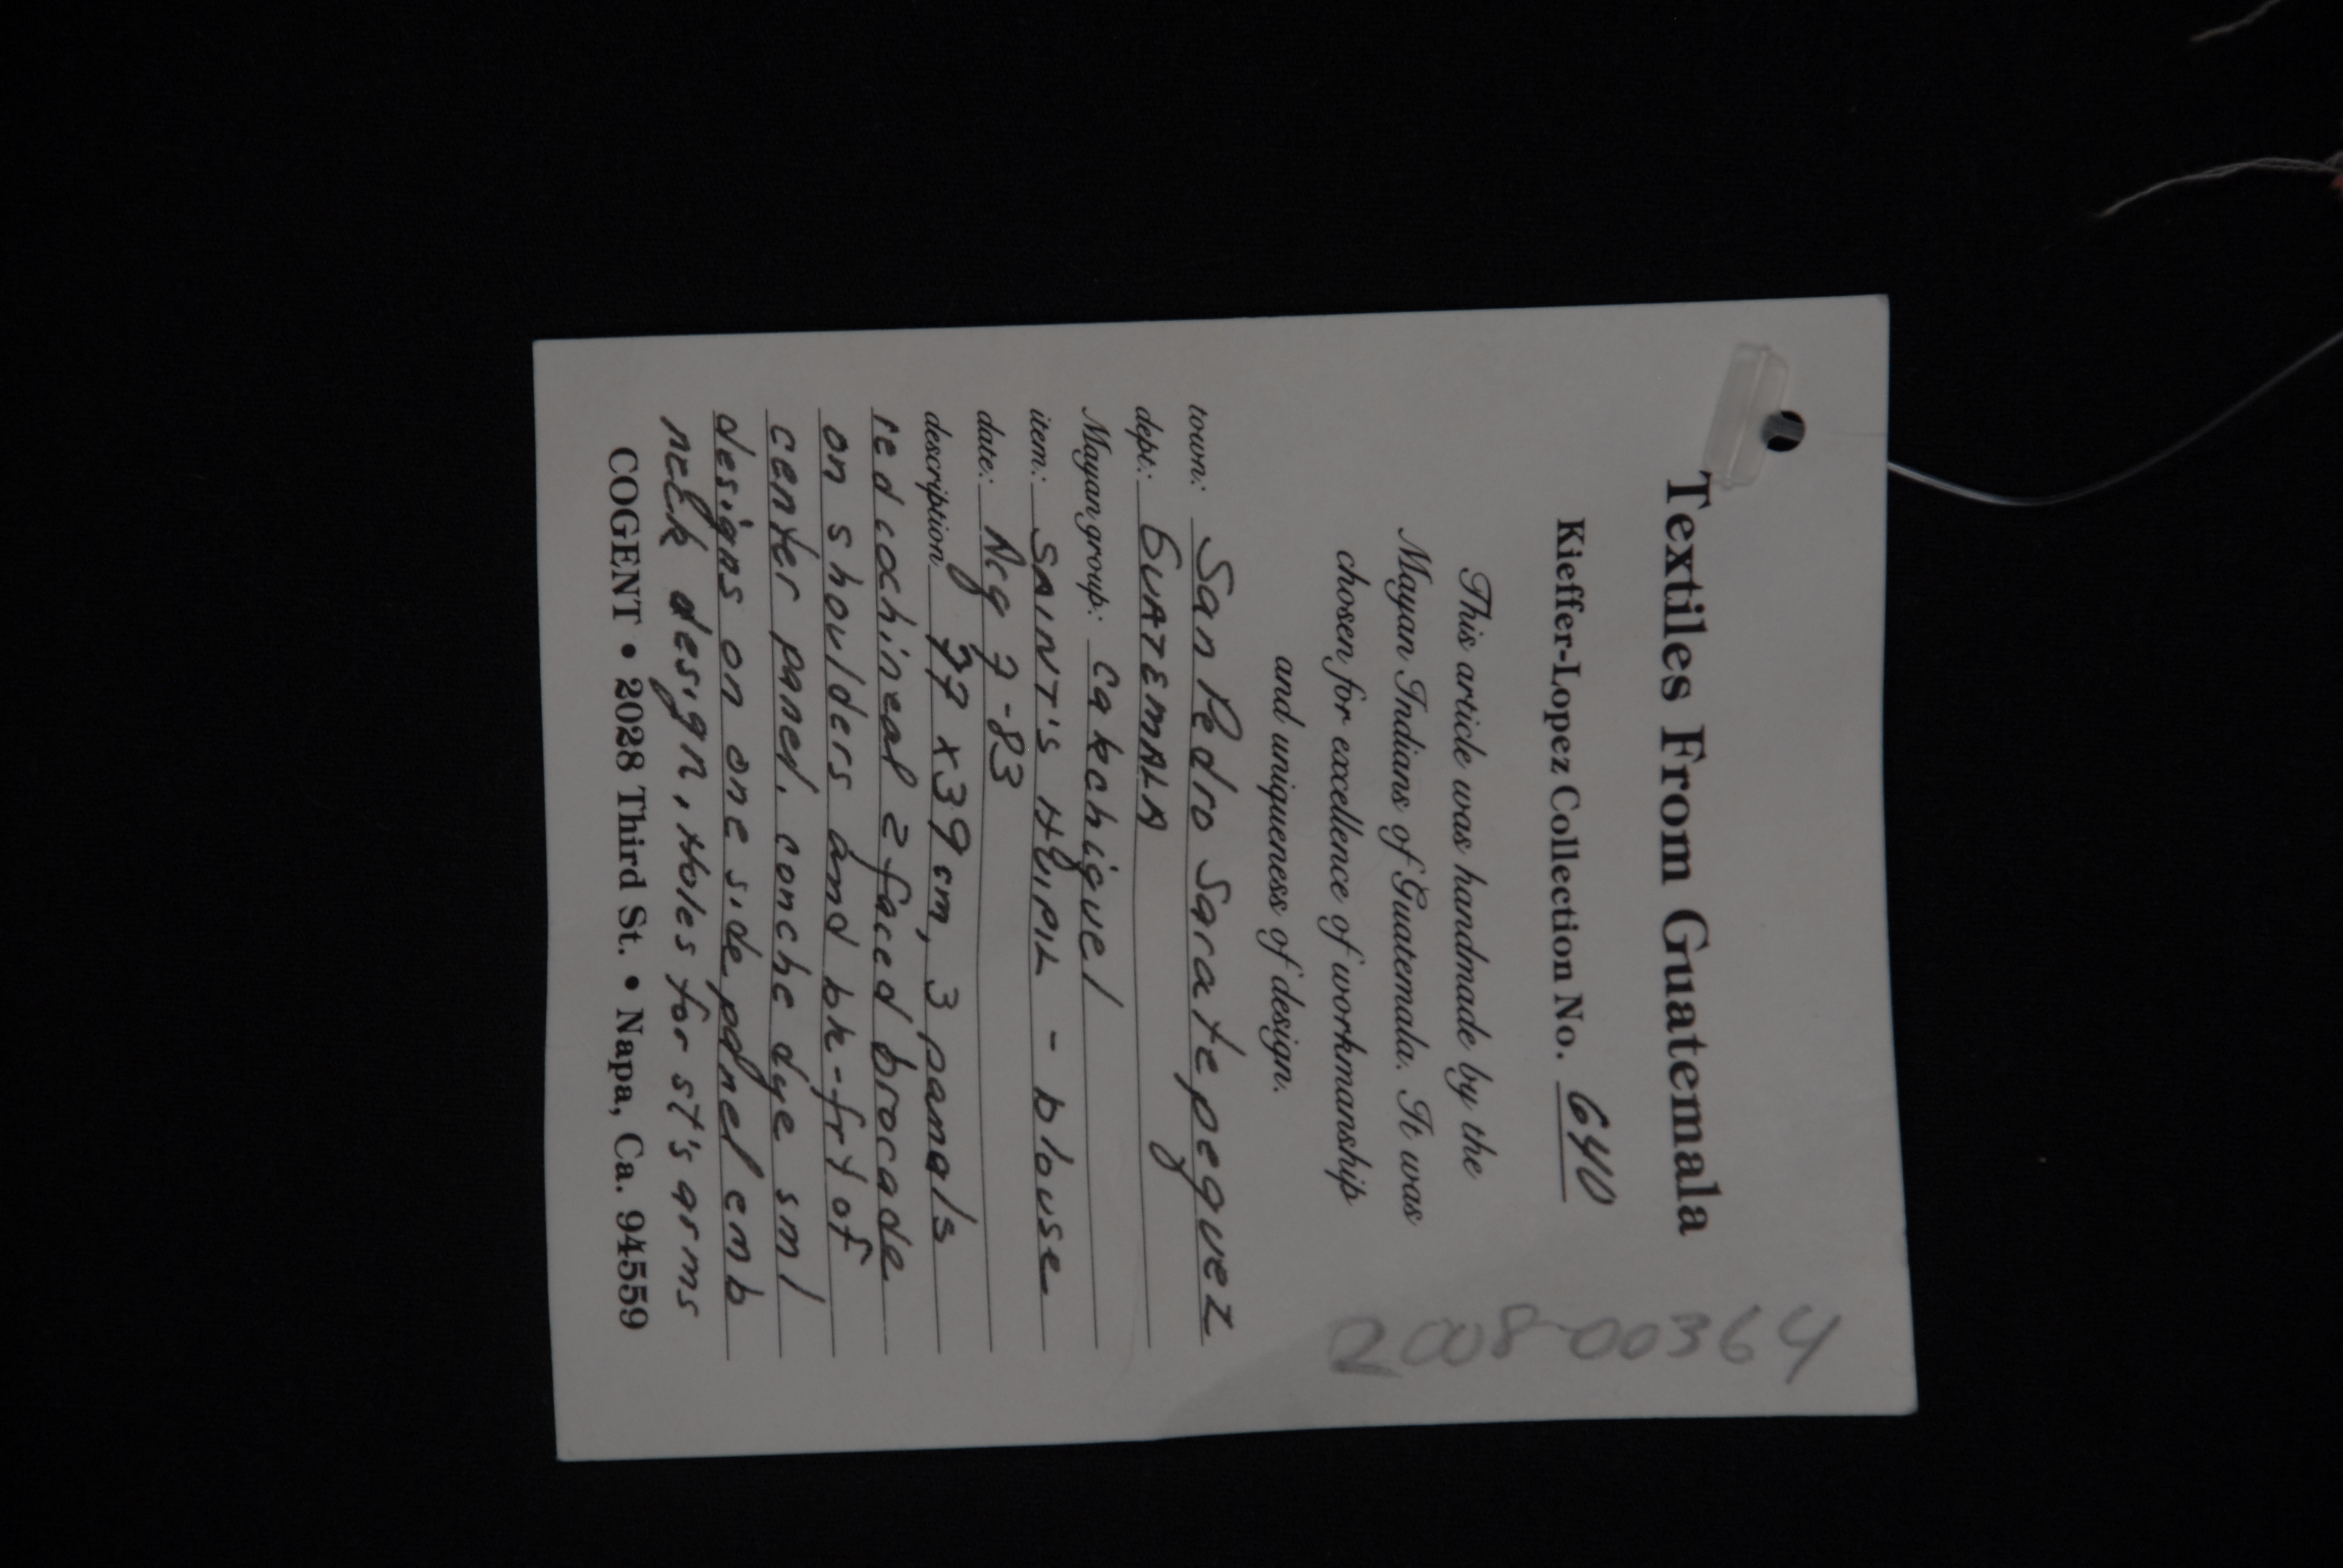 Textiles From Guatemala
Kieffer-Lopez Collection No. 640
2008-00364
This article was handmade by the
Mayan Indians of Guatemala. It was
chosen for excellence of workmanship
and uniqueness of design.
town: San Pedro Saratepequez
dept.: GUATEMALA
Mayan group: Cakchiquel
item: SAINT'S HUIPIL - blouse
date: 7-83
description 77 x 39 cm, 3 panals
red cochineal 2 faced brocade
on shoulders and bk-frt of
center panel. conche dye sml
designs on one side panel emb
neck design, Holes for st's arms
COGENT • 2028 Third St. • Napa, Ca. 94559